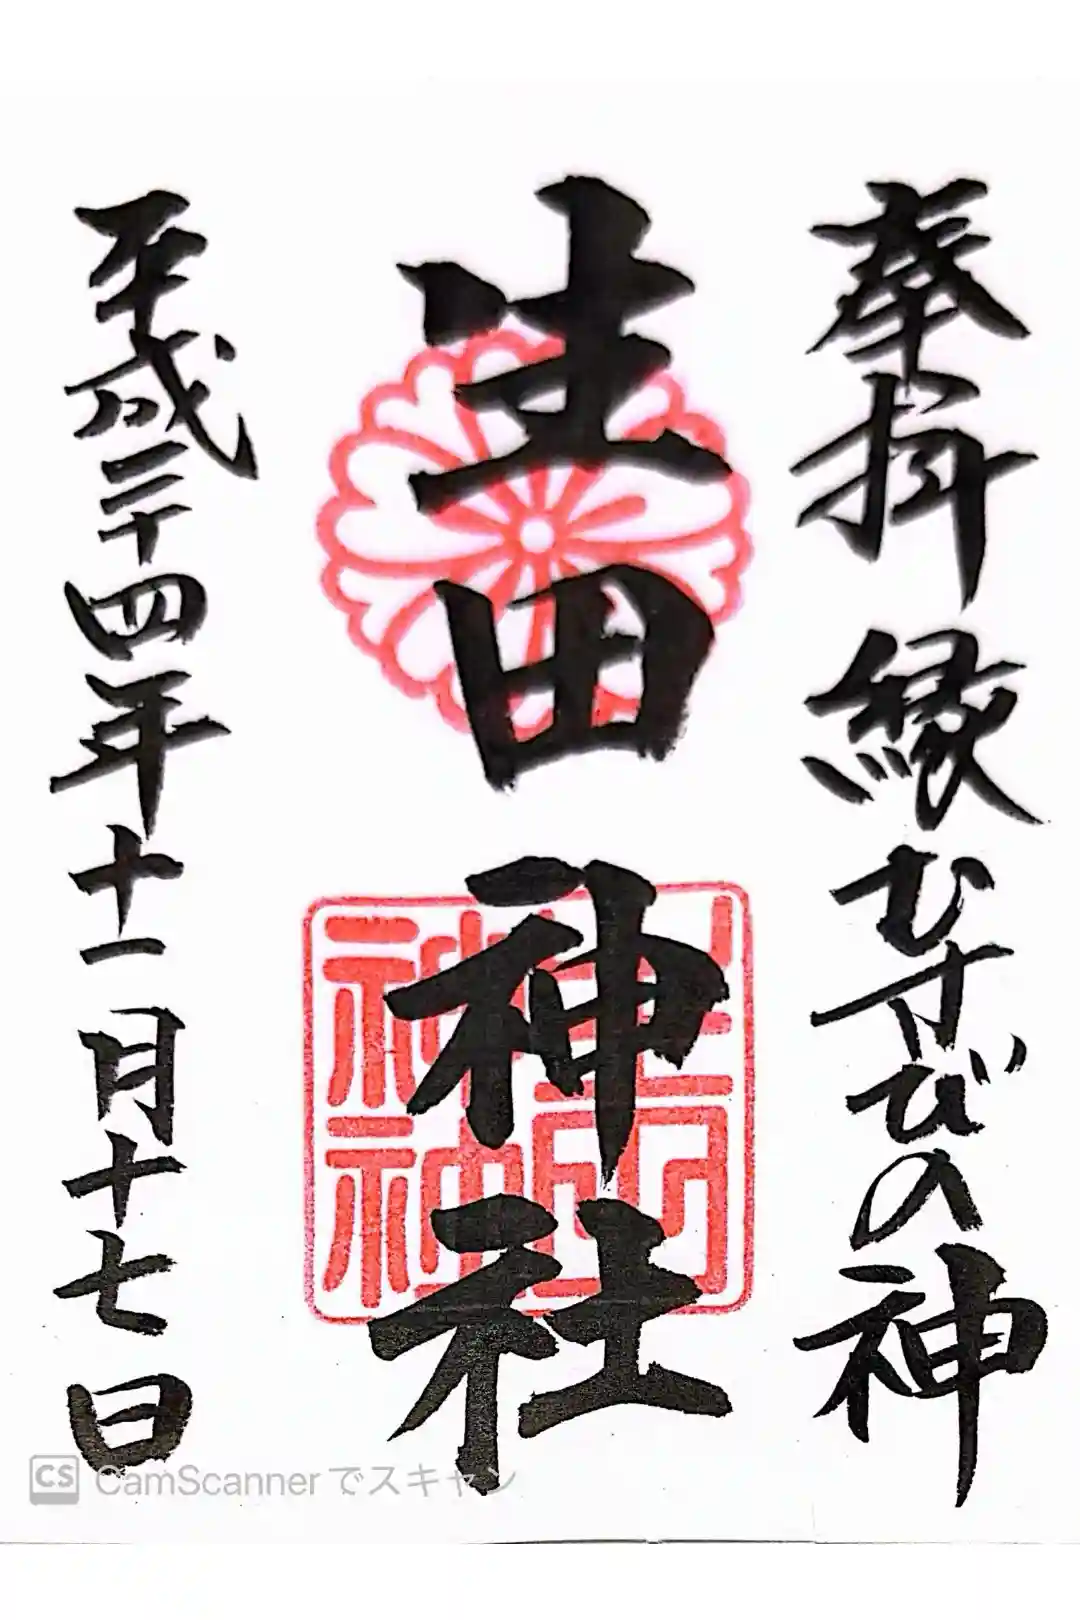 奉拝 縁むすびの神
生田神社
平成二十四年十一月十七日
CS CamScannerでスキャン